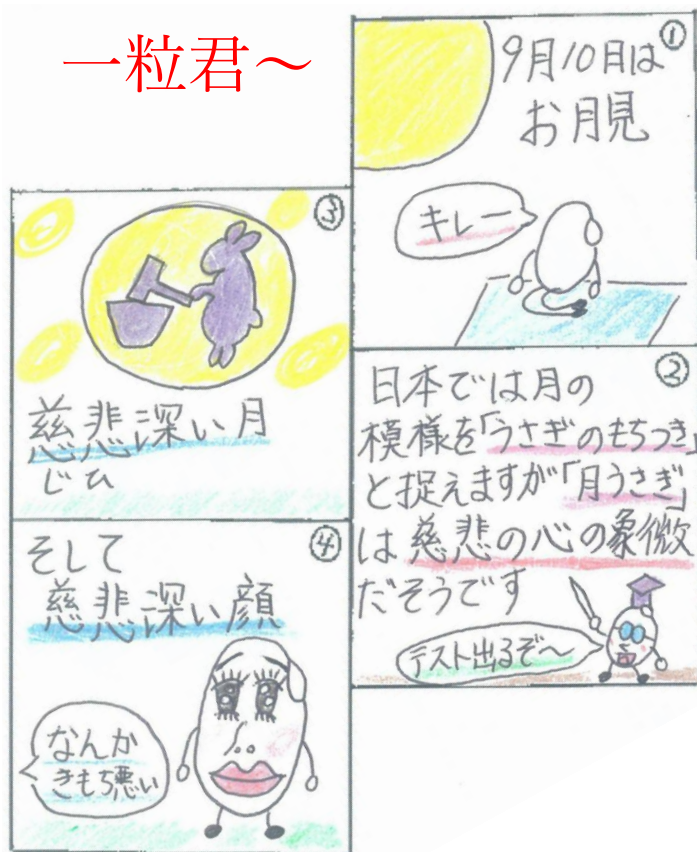 一粒君～
①
9月10日は
お月見
キレー
②
日本では月の
模様を「うさぎのもちつき」
と捉えますが「月うさぎ」
は慈悲の心の象微
だそうです
テスト出るぞ～
③
慈悲深い月
じひ
④
そして
慈悲深い顔
なんか
きもち悪い